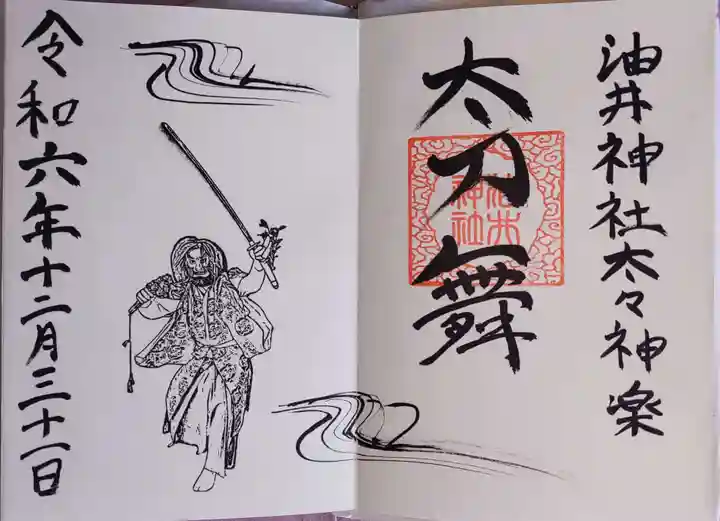 油井神社太々神楽
太刀舞
油井神社
令和六年十二月三十一日